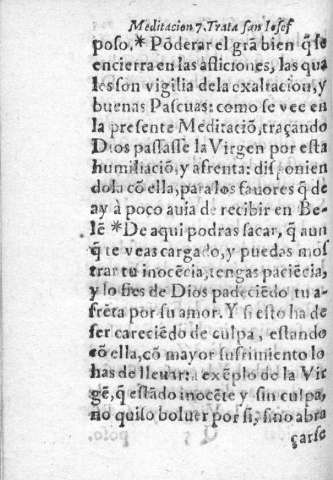 Meditacion 7. Trata san Iosef
poso, * Põderar el grã bien q̃ se
encierra en las aflicciones, las qua
les son vigilia dela exaltacion, y
buenas Pascuas: como se vee en
la presente Meditaciõ, traçando
Dios passasse la Virgen por esta
humiliaciõ, y afrenta: disponien
dola cõ ella, para los fauores q̃ de
ay à poco auia de recibir en Be-
lẽ * De aqui podras sacar, q̃ aun
q̃ te veas cargado, y puedas mos
trar tu inocẽcia, tengas paciẽcia,
y lo fies de Dios padeciẽdo tu a-
frẽta por su amor. Y si esto ha de
ser careciẽdo de culpa, estando
cõ ella, cõ mayor sufrimiento lo
has de lleuar: a exẽplo de la Vir
gẽ, q̃ estãdo inocẽte y sin culpa,
no quiso boluer por si, sino abra
çarse